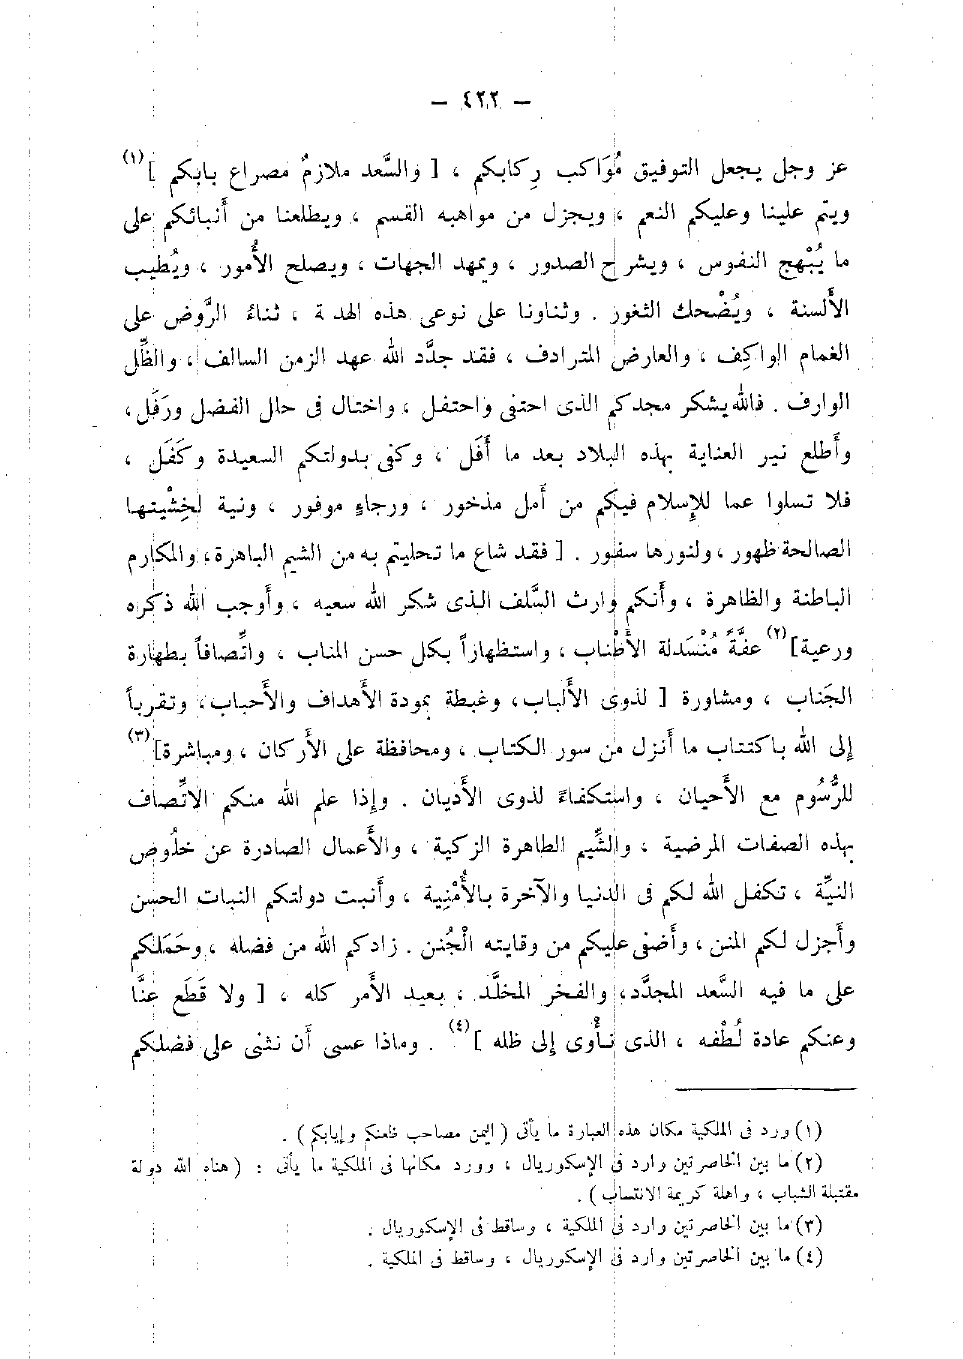 — ٤٢٢ —
عز وجل يجعل التوفيق مُوَاكب رِكابكم ، [ والسَّعد ملازمٌ مصراع بابكم ](١)
ويتم علينا وعليكم النعم ، ويجزل من مواهبه القسم ، ويطلعنا من أَنبائكم على
ما يُبْهج النفوس ، ويشرح الصدور ، ويمهد الجهات ، ويصلح الأُمور ، ويُطيب
الأَلسنة ، ويُضْحك الثغور . وثناونا على نوعى هذه الهدية ، ثناءُ الرَّوض على
الغمام الواكِف ، والعارض المترادف ، فقد جدَّد الله عهد الزمن السالف ، والظِّل
الوارف . فالله يشكر مجدكم الذى احتفى واحتفل ، واختال فى حال الفضل ورَفَل ،
وأَطلع نير العناية بهذه البلاد بعد ما أَفَل ، وكفى بدولتكم السعيدة وكَفَل ،
فلا تسلوا عما للإِسلام فيكم من أَمل مذخور ، ورجاءٍ موفور ، ونية لخِشْيتها
الصالحة ظهور ، ولنورها سفور . [ فقد شاع ما تحليتم به من الشيم الباهرة ، والمكارم
الباطنة والظاهرة ، وأَنكم وارث السَّلف الذى شكر الله سعيه ، وأَوجب الله ذكره
ورعية](٢) عفَّةً مُنْسَدلة الأَطْناب ، واستظهاراً بكل حسن المناب ، واتِّصافاً بطهارة
الجَناب ، ومشاورة [ لذوى الأَلباب ، وغبطة بمودة الأَهداف والأَحباب ، وتقرباً
إلى الله باكتتاب ما أَنزل من سور الكتاب ، ومحافظة على الأَركان ، ومباشرة](٣)
للرُّسُوم مع الأَحيان ، واستكفاءً لذوى الأَديان . وإذا علم الله منكم الاتِّصاف
بهذه الصفات المرضية ، والشِّيم الطاهرة الزكية ، والأَعمال الصادرة عن خلُوص
النيِّة ، تكفل الله لكم فى الدنيا والآخرة بالأُمْنِية ، وأَنبت دولتكم النبات الحسن
وأَجزل لكم المنن ، وأَضفى عليكم من وقايته الْجُنن . زادكم الله من فضله ، وحَمَلكم
على ما فيه السَّعد المجدَّد ، والفخر المخلَّد ، بعيد الأَمر كله ، [ ولا قَطَع عنَّا
وعنكم عادة لُطْفه ، الذى نأْوى إلى ظله ](٤) . وماذا عسى أَن نثنى على فضلكم
(١) ورد فى الملكية مكان هذه العبارة ما يأتى ( اليمن مصاحب ظعنكم وإيابكم ) .
(٢) ما بين الخاصرتين وارد فى الإسكوريال ، وورد مكانها فى الملكية ما يأتى : ( هناه الله دولة
مقتبلة الشباب ، واهلة كريمة الانتساب ) .
(٣) ما بين الخاصرتين وارد فى الملكية ، وساقط فى الإسكوريال .
(٤) ما بين الخاصرتين وارد فى الإسكوريال ، وساقط فى الملكية .